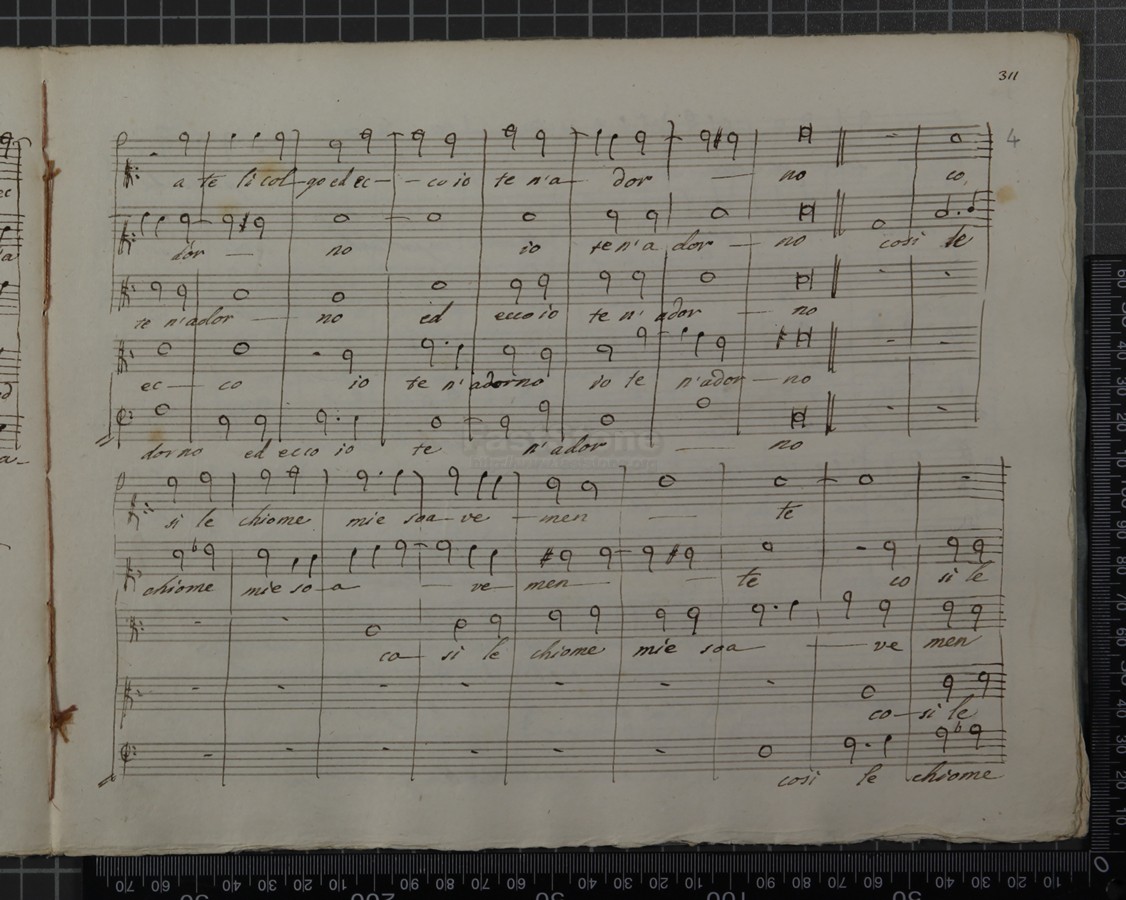 311
4
a te li col-go ed ec - - co io te n'a- dor — no co
dor — no io te n'a dor — no cosi le
te n'ador — no ed ecco io te n' ador — no
ec — co io te n'adorno io te n'ador — no
dorno ed ecco io te n'ador — no
si le chiome mie soa- ve - men — te
chiome mie so - a — ve - men — te co si le
co- si le chiome mie soa — ve men
co-si le
cosi le chiome